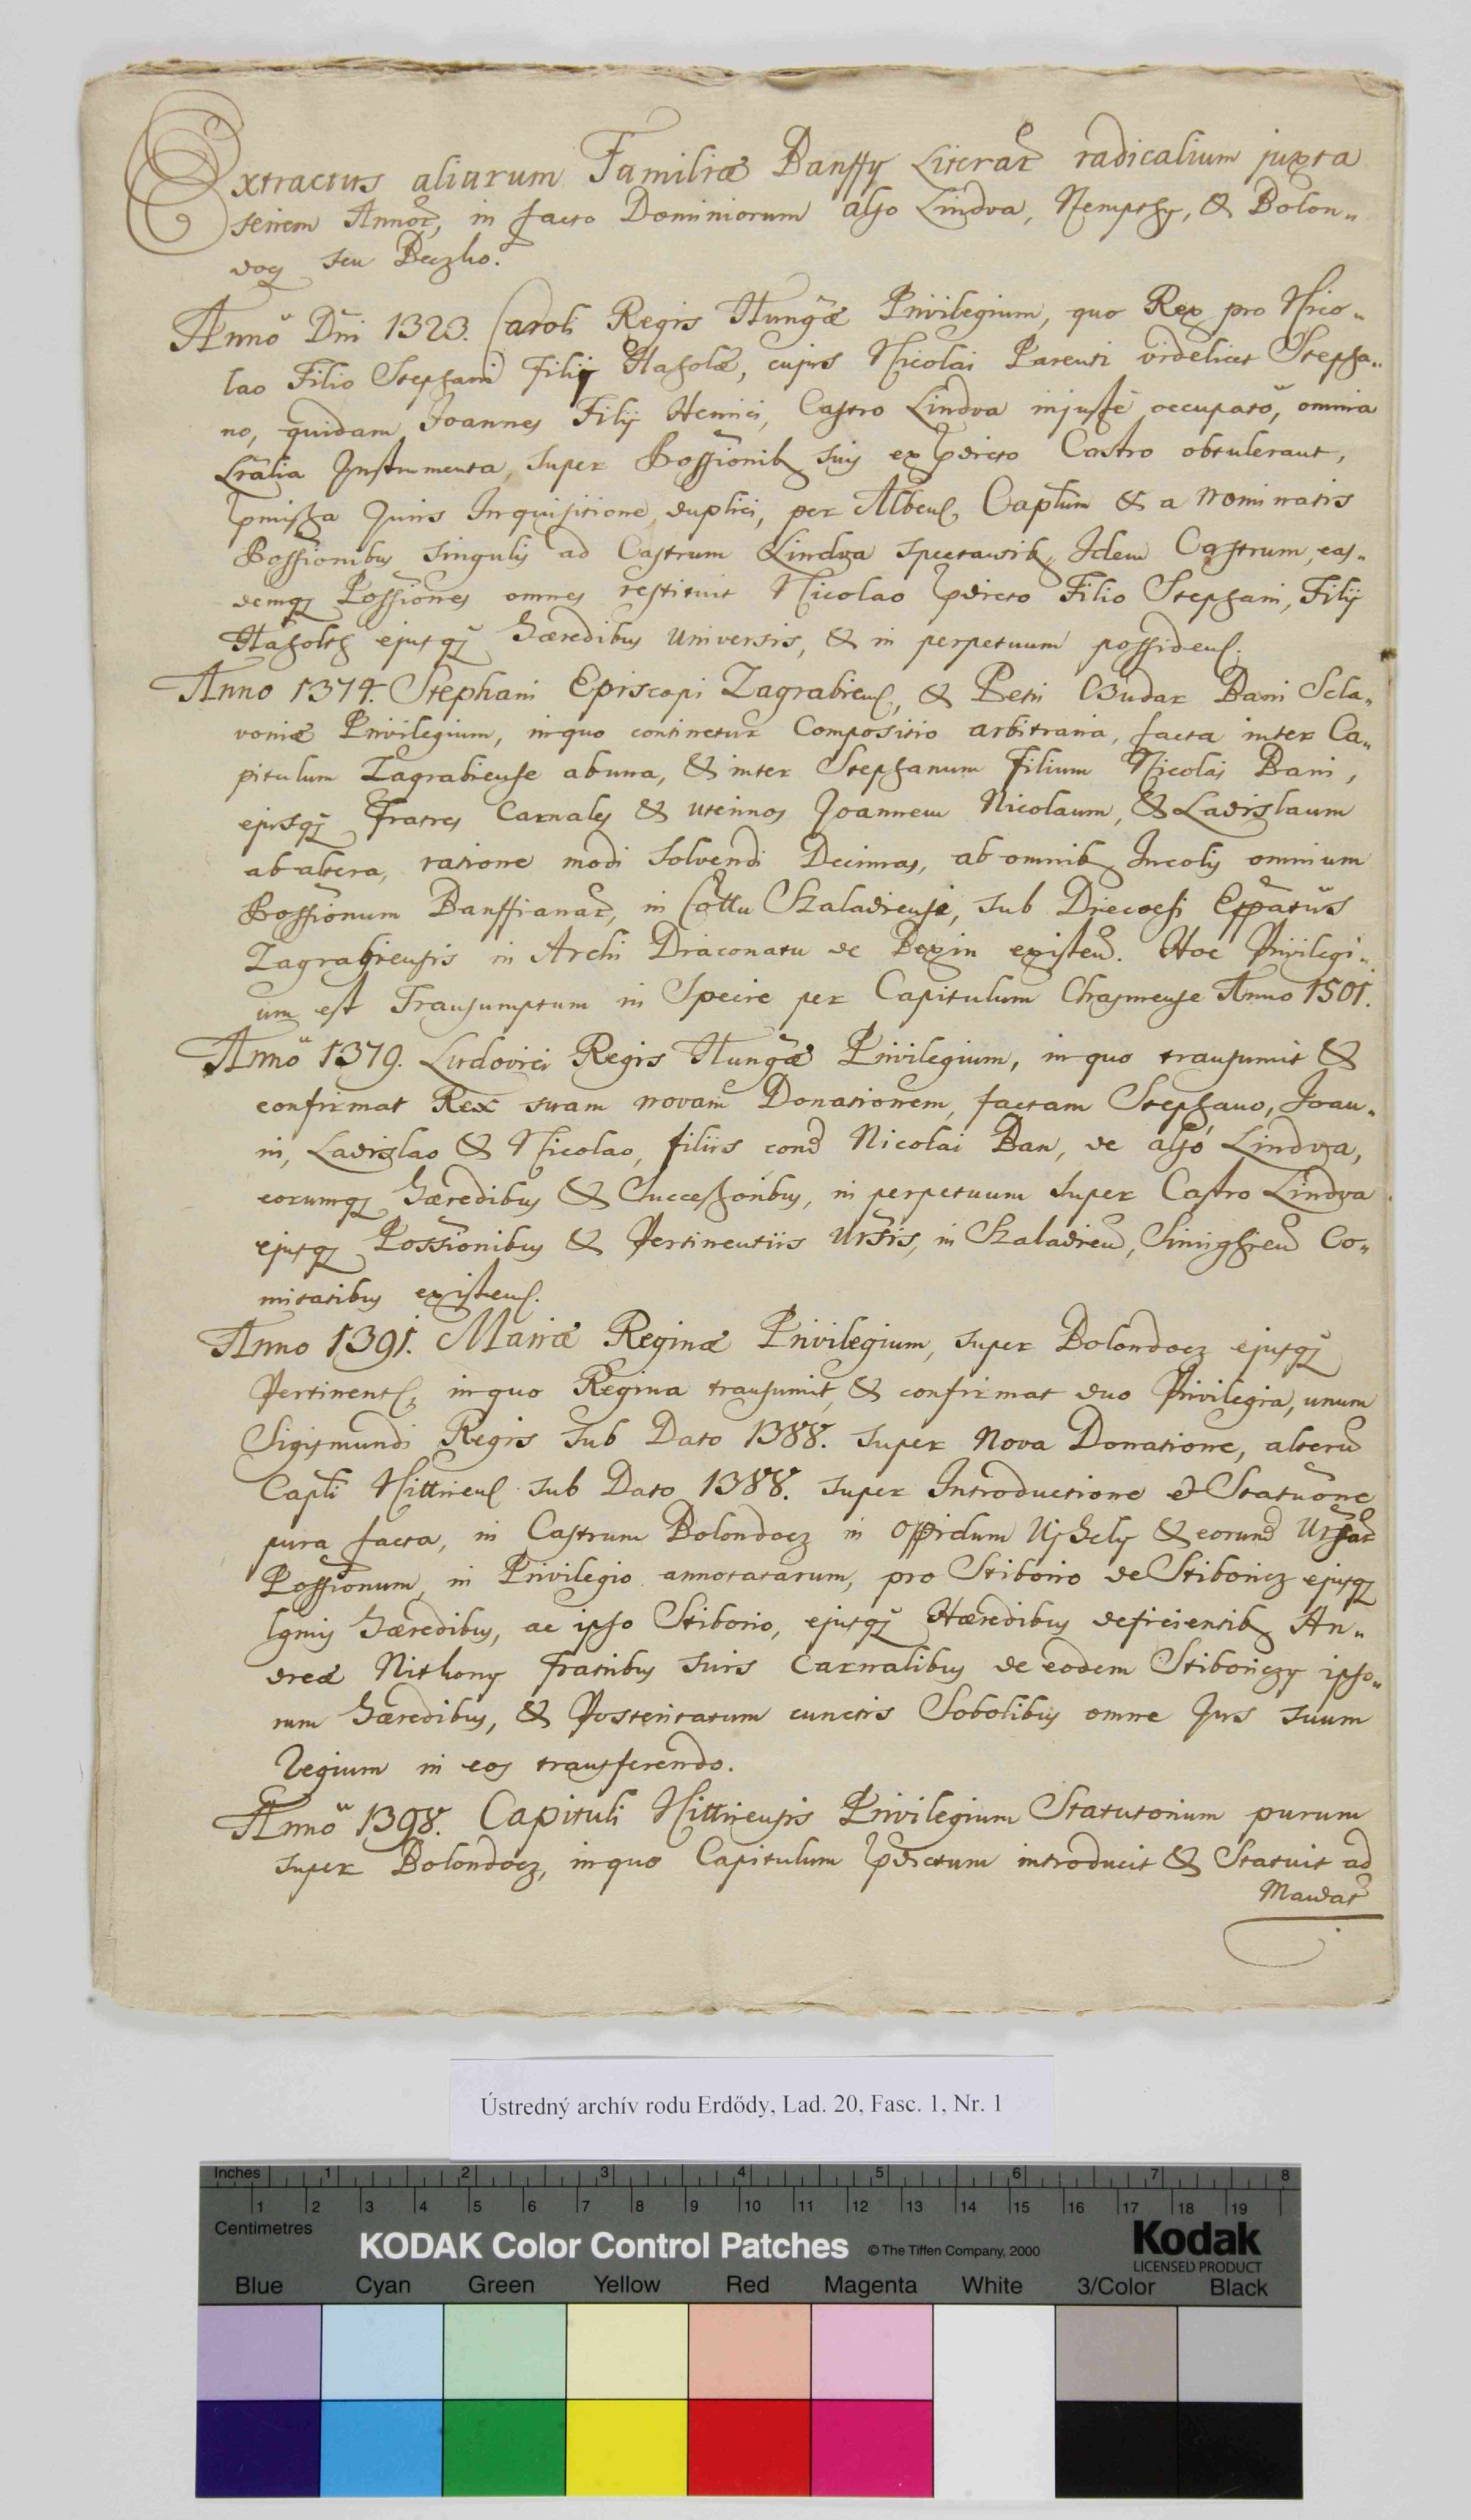 Extractus aliarum Familiæ Banffy Literar̃ radicalium juxta
seriem Annor̃, in facto Dominiorum also Lindva, Nempthy, & Bolon„
docz seu Beczko.
Anno Dñi 1323. Caroli Regis Hungæ Privilegium, quo Rex pro Nico„
lao Filio Stephani Filij Haholdæ, cujus Nicolai Parenti videlicet Stepha„
no, quidam Joannes Filij Henrici, Castro Lindva injuste occupato, omnia
Lralia Instrumenta, super Possionib9 suis ex p̃dicto Castro abstulerant,
p̃missa Juris Inquisitione duplici, per Albens. Captlum & a nominatis
Possionibus singulis ad Castrum Lindva spectantib9 Idem Castrum, eas„
demq3 Possiones omnes restituit Nicolao p̃dicto Filio Stephani, Filij
Haholth ejusq3 Hæredibus universis, & in perpetuum possidens.
Anno 1374. Stephani Episcopi Zagrabiens, & Petri Czudar Bani Scla„
voniæ Privilegium, inquo continetur Compositio arbitraria, facta inter Ca„
pitulum Zagrabiense abuna, & inter Stephanum filium Nicolai Bani,
ejusq3 Fratres Carnales & uterinos Joannem Nicolaum, & Ladislaum
abaltera, ratione modi solvendi Decimas, ab omnib9 Incolis omnium
Possionum Banffianar̃, in Cottu Szaladiensi, sub Diecoesi Eppatus
Zagrabiensis in Archi Diaconatu de Bexin existen. Hoc Privilegi„
um est Transumptum in Specie per Capitulum Chasmense Anno 1501.
Anno 1379. Ludovici Regis Hungæ Privilegium, inquo transumit &
confirmat Rex suam novam Donationem, factam Stephano, Joan„
ni, Ladislao & Nicolao, filiis cond Nicolai Ban, de alsó Lindva,
eorumq3 Hæredibus & Successoribus, in perpetuum super Castro Lindva
ejusq3 Possionibus & Pertinentiis Ursis, in Szaladien, Simighien Co„
mitatibus existens.
Anno 1391. Mariæ Reginæ Privilegium, super Bolondocz ejusq3
Pertinents, inquo Regina transumit, & confirmat duo Privilegia, unum
Sigismundi Regis sub Dato 1388. super Nova Donatione, alterũ
Capli Nittriens sub Dato 1388. super Introductione & Statuone
pura facta, in Castrum Bolondocz in Oppidum Uj hely & eorund Ursar̃
Possionum, in Privilegio annotatarum, pro Stiborio de Stiboricz ejusq3
lgmis Hæredibus, ac ipso Stiborio, ejusq3 Hæredibus deficientib9 An„
dreæ Nithony fratribus suis Carnalibus de eodem Stiboriczy ipso„
rum Hæredibus, & Posteritatum cunctis Sobolibus omne Jus suum
Regium in eos transferendo.
Anno 1398. Capituli Nittriensis Privilegium Statutorium purum
super Bolondocz, inquo Capitulum p̃dictum introducit & Statuit ad
Mandat̃
Ústredný archív rodu Erdődy, Lad. 20, Fasc. 1, Nr. 1
Inches 1 2 3 4 5 6 7 8
1 2 3 4 5 6 7 8 9 10 11 12 13 14 15 16 17 18 19
Centimetres
KODAK Color Control Patches © The Tiffen Company, 2000
Kodak
LICENSED PRODUCT
Blue Cyan Green Yellow Red Magenta White 3/Color Black